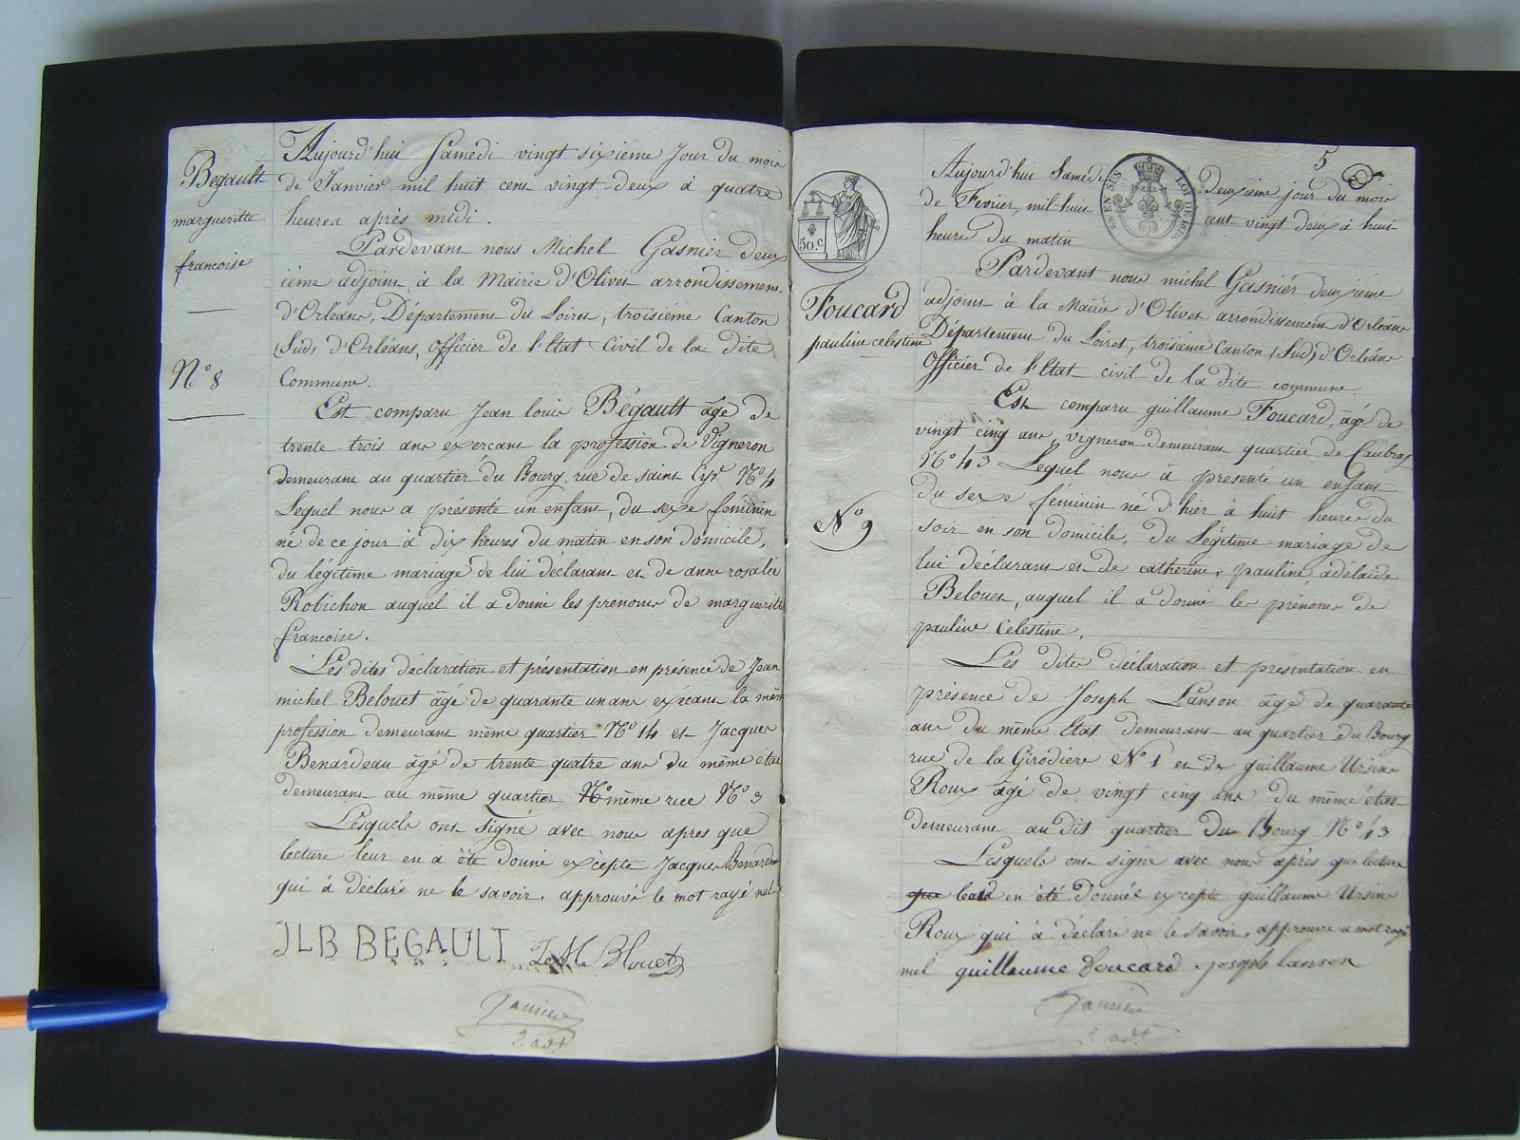 Begault
margueritte
francoise
N° 8
Aujourd'hui Samedi vingt sixieme Jour du mois
de Janvier mil huit cent vingt-deux à quatre
heures après midi.
Pardevant nous Michel Gasnier deux
ième adjoint à la Mairie d'Olivet arrondissement
d'Orléans, Département du Loiret, troisieme Canton
(Sud) d'Orléans, officier de l'Etat Civil de la dite
Commune.
Est comparu Jean louis Bégault âgé de
trente trois ans exercant la profession de Vigneron
demeurant au quartier du Bourg, rue de saint Cyr N° 4
Lequel nous a présenté un enfant, du sexe féminin
né de ce jour à dix heures du matin en son domicile,
du légitime mariage de lui déclarant et de anne rosalie
Robichon auquel il a donné les prenoms de margueritte
francoise.
Les dites déclaration et présentation en présence de Jean
michel Belouet âgé de quarante un ans exécant la même
profession demeurant même quartier N° 14 et Jacques
Benardeau âgé de trente quatre ans du même état
demeurant au même quartier N° même rue N° 3
Lesquels ont signé avec nous apres que
lecture leur en à été donné excepte Jacques Benardeau
qui à déclaré ne le savoir. approuvé le mot rayé nul
JLB BEGAULT J. M. Blouet
Gasnier
2. adt
5
Aujourd'hui Samedi deuxieme jour du mois
de Fevrier, mil huit cent vingt deux à huit
heures du matin
50.C
Foucard
pauline celestine
N° 9
Pardevant nous michel Gasnier deuxieme
adjoint à la Mairie d'Olivet arrondissement d'Orléans
Département du Loiret, troisieme Canton (Sud) d'Orléans
Officier de l'Etat civil de la dite commune
Est comparu guillaume Foucard, âgé de
vingt cinq ans, vigneron demeurant quartier de Caubray
N° 43 Lequel nous à presenté un enfant
du sexe féminin né d'hier à huit heures du
soir en son domicile, du Légitime mariage de
lui déclarant et de catherine, pauline, adelaide
Belouet, auquel il a donné les prénoms de
pauline Celestine.
Les dites déclaration et presentation en
présence de Joseph Lanson âgé de quarante
ans du même Etat demeurant au quartier du Bourg
rue de la Girodiere N° 1 et de guillaume Ursin
Roux âgé de vingt cinq ans du même état
demeurant au dit quartier du Bourg N° 13
Lesquels ont signé avec nous après que lecture
que leur en été donnée excepte guillaume Ursin
Roux qui à déclaré ne le savoir, approuvé a mot rayé
nul guillaume foucard joseph lanson
Gasnier
2. adt